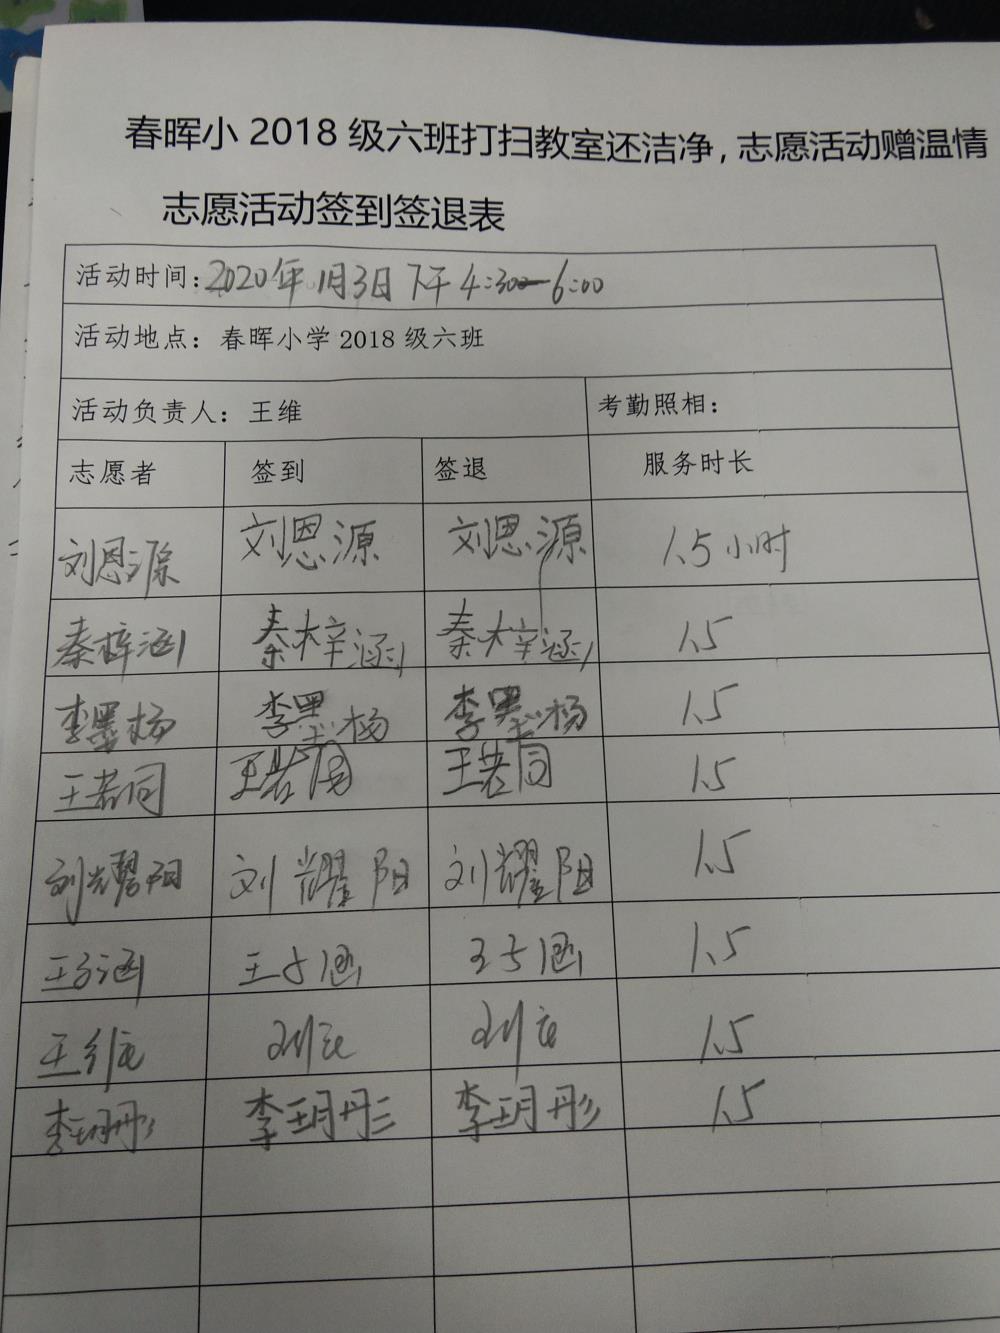 春晖小 2018 级六班打扫教室还洁净，志愿活动赠温情
志愿活动签到签退表
活动时间：2020年1月3日下午4:30—6:00
活动地点：春晖小学 2018 级六班
活动负责人：王维 考勤照相：
志愿者 签到 签退 服务时长
刘恩源 刘恩源 刘恩源 1.5小时
秦梓涵 秦梓涵 秦梓涵 1.5
李墨杨 李墨杨 李墨杨 1.5
王若同 王若同 王若同 1.5
刘耀阳 刘耀阳 刘耀阳 1.5
王子涵 王子涵 王子涵 1.5
1.5
李玥彤 李玥彤 李玥彤 1.5